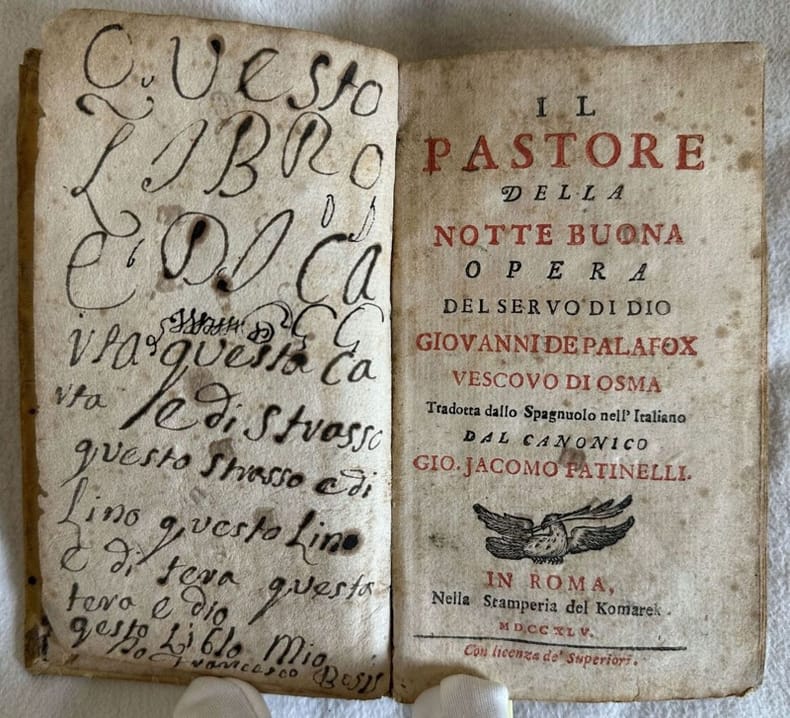 QUesto
LIBRO
E DI Ca
rta questa Ca
rta e di strasso
questo strasso e di
Lino questo Lino
e di tera questa
tera e dio
qesto Liblo Mio
Francesco
IL
PASTORE
DELLA
NOTTE BUONA
OPERA
DEL SERVO DI DIO
GIOVANNI DE PALAFOX
VESCOVO DI OSMA
Tradotta dallo Spagnuolo nell' Italiano
DAL CANONICO
GIO. JACOMO FATINELLI.
IN ROMA,
Nella Stamperia del Komarek.
MDCCXLV.
Con licenza de' Superiori.